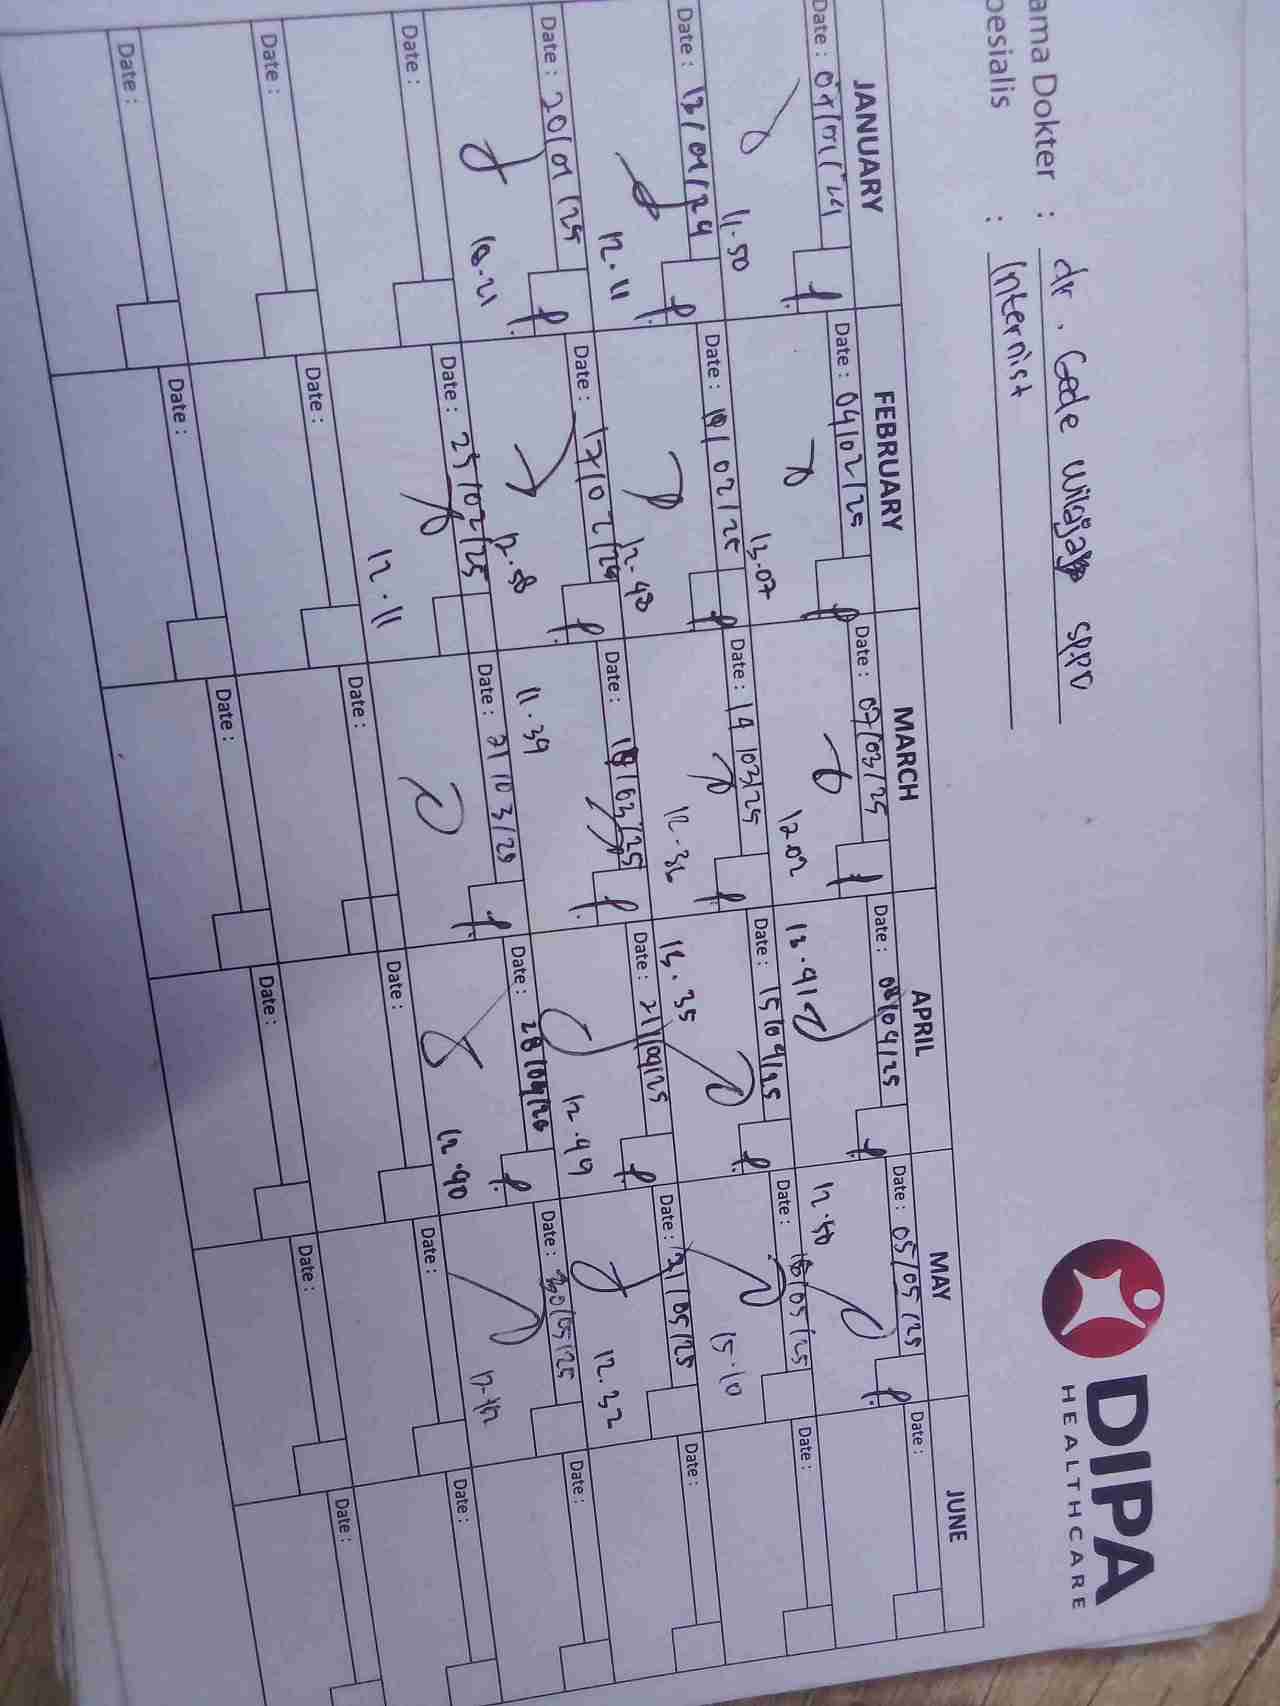 DIPA
HEALTHCARE
ama Dokter : dr. Gede Wilaja SP.PD
pesialis : Internist
JANUARY FEBRUARY MARCH APRIL MAY JUNE
Date : 07/01/24 Date : 04/02/25 Date : 07/03/25 Date : 08/04/25 Date : 05/05/25 Date :
11.50 13.07 12.02 13.41 12.50
Date : 13/01/24 Date : 10/02/25 Date : 14/03/25 Date : 15/04/25 Date : /05/25 Date :
12.11 12.48 12.36 13.35 15.10
Date : 20/01/25 Date : 17/02/25 Date : 18/03/25 Date : 21/04/25 Date : 21/05/25 Date :
10.21 12.58 11.39 12.49 12.32
Date : Date : 25/02/25 Date : 21/03/25 Date : 28/04/20 Date : 30/05/25 Date :
12.11 12.40
Date : Date : Date : Date : Date : Date :
Date : Date : Date : Date : Date : Date :